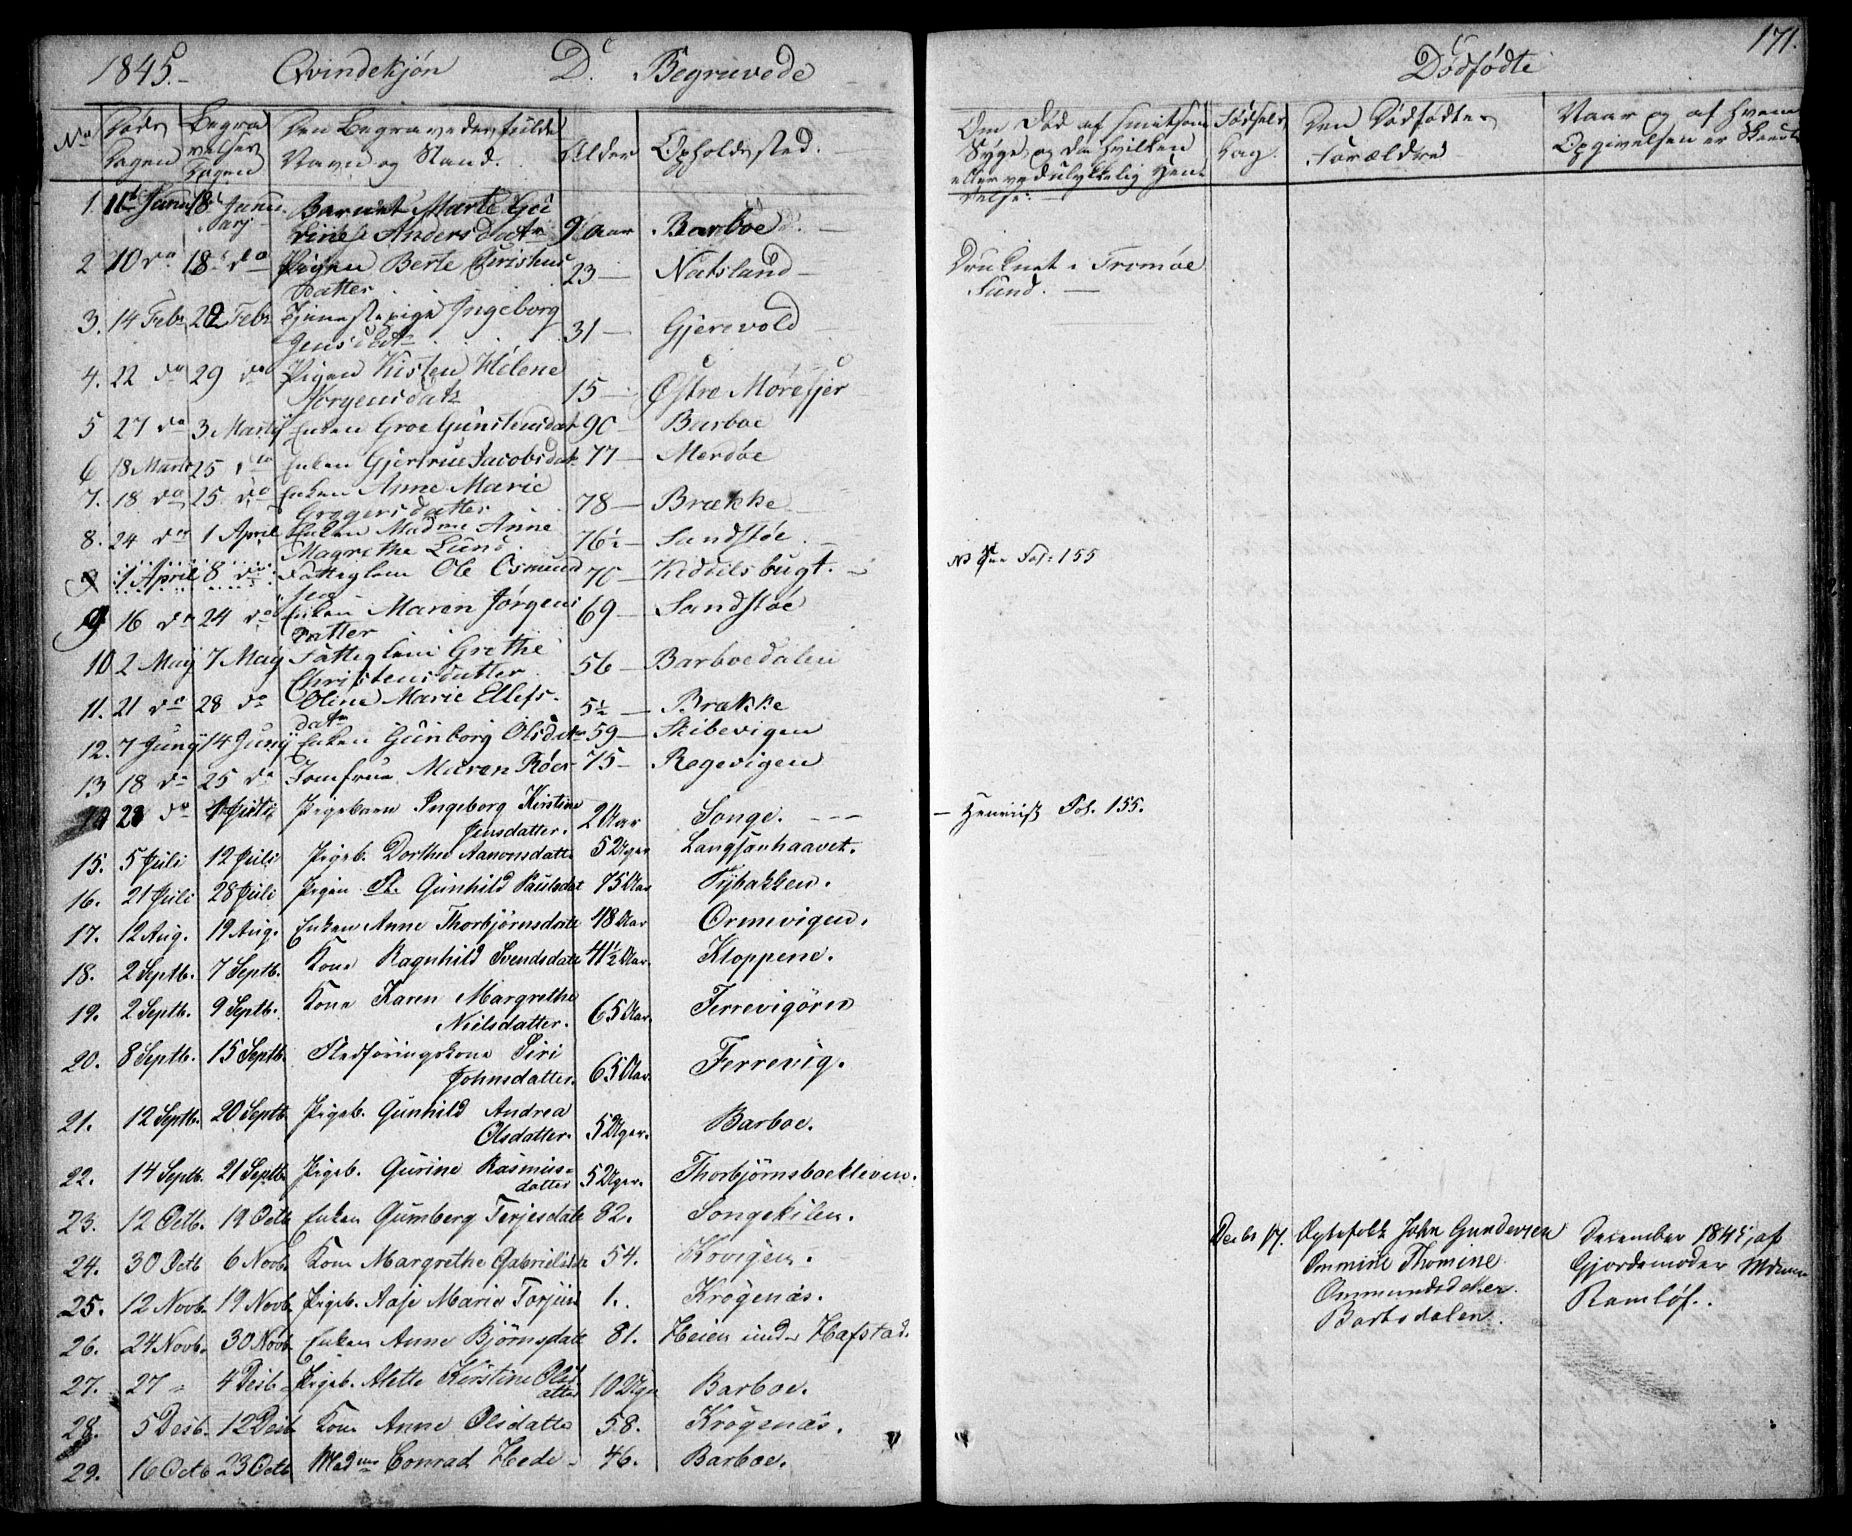 1845.- Qvindekjøn D. Begravede
No Døds Dagen Begravelses Dagen Den Begravedes fulde Navn og Stand. Alder Opholdssted.
1. 11te Junii 18 Junii Barnet Marte Gurine Andersdatr 9 Aar Barboe
2 10 do 18 do Pigen Berte Christens datter 23 Natsland
3. 14 Febr 22 Febr Tjenestepige Ingeborg Jensdatr 31 Gjerevold
4. 22 do 29 do Pigen Kisten Hélene Jorgensdatr 15 Østre Moresjer
5 27 do 3 Martij Enken Groe Gunstensdat 90 Barboe
6 18 Marts 25 do Enken Gjertrue Jacobsdat 77 Merdøe
7. 18 do 25 do Enken Anne Marie Gregersdatter 78 Brække
8. 24 do 1 April Enken Madme Anne Magrethe Lund 76½ Sandstøe
9 1 April 8 do Fatteglem Ole Osmundsen 70 Kiddilsbugt.
9 16 do 24 do Enken Maren Jørgens datter 69 Sandstøe
10 2 Maij 7 Maij Fatteglem Grethe Christensdatter 56 Barboedalen
11. 21 do 28 do Oline Marie Ellefs-datr 5½ Brække
12. 7 Junij 14 Junij Enken Gunborg Olsdatr 59 Skibevigen
13 18 do 25 do Jomfrue Maren Röer 75 Regevigen
14 28 do 1 Juli Pigebarn Ingeborg Kirstine Jensdatter. 2 Aar Songe.
15. 5 Juli 12 Juli Pigeb. Dorthe Aanonsdatter 5 Uger Langsæhaavet.
16. 21 Juli 28 Juli Pigen Gunhild Paulsdat 75 Aar Tybakken.
17. 12 Aug. 19 Aug. Enken Anne Thorbjörnsdatter 48 Aar Ormevigen.
18. 2 Septb. 7 Septb. Kone Ragnhild Svendsdatter 41½ Aar. Kloppene.
19. 2 Septb. 9 Septb. Kone Karen Margrethe Nielsdatter. 65 Aar. Ferrevigören
20. 8 Septb. 15 Septb. Fledføringskone Siri Johnsdatter. 65 Aar. Ferrevig.
21. 12 Septb. 20 Septb. Pigeb. Gunhild Andrea Olsdatter. 5 Uger. Barboe.
22. 14 Septb. 21 Septb. Pigeb. Gurine Rasmus-datter 5 Uger. Thorbjörnsboekleven.
23. 12 Octb. 19 Octb Enken Gumberg Terjesdatr 82. Songekilen.
24. 30 Octb 6 Novb. Kone Margrethe Gabrielsdr 54. Krovigen.
25. 12 Novb. 19 Novb. Pigeb. Aase Marie Torjus 1. Krögenäs.
26. 24 Novb. 30 Novb. Enken Anne Bjørnsdatr 81. Heien under Hafstad.
27. 27 " 4 Desb. Pigeb. Alette Kirstine Olsdatter 10 Uger Barboe.
28. 5 Desb. 12 Desb. Kone Anne Olsdatter 58. Krögenäs.
29. 16 Octb 23 Octb Madme Conrad Hede 46. Barboe.
171.
Dødfødte
Om Død af smitsom Syge og da hvilken eller ved ulykkelig Hendelse: Fødsels Dag. Den Dødfødtes Forældre Naar og af hvem Opgivelsen er Skeedt
Druknet i Tromøe Sund.
NB Fol: 155
- Henviist Fol. 155.
Decbr 17. Egtefolk John Gundersen
Ommine Thomine
Ommundsdatter
Barbodalen.
December 1845, af
Gjordemoder Mdme
Ramløf.